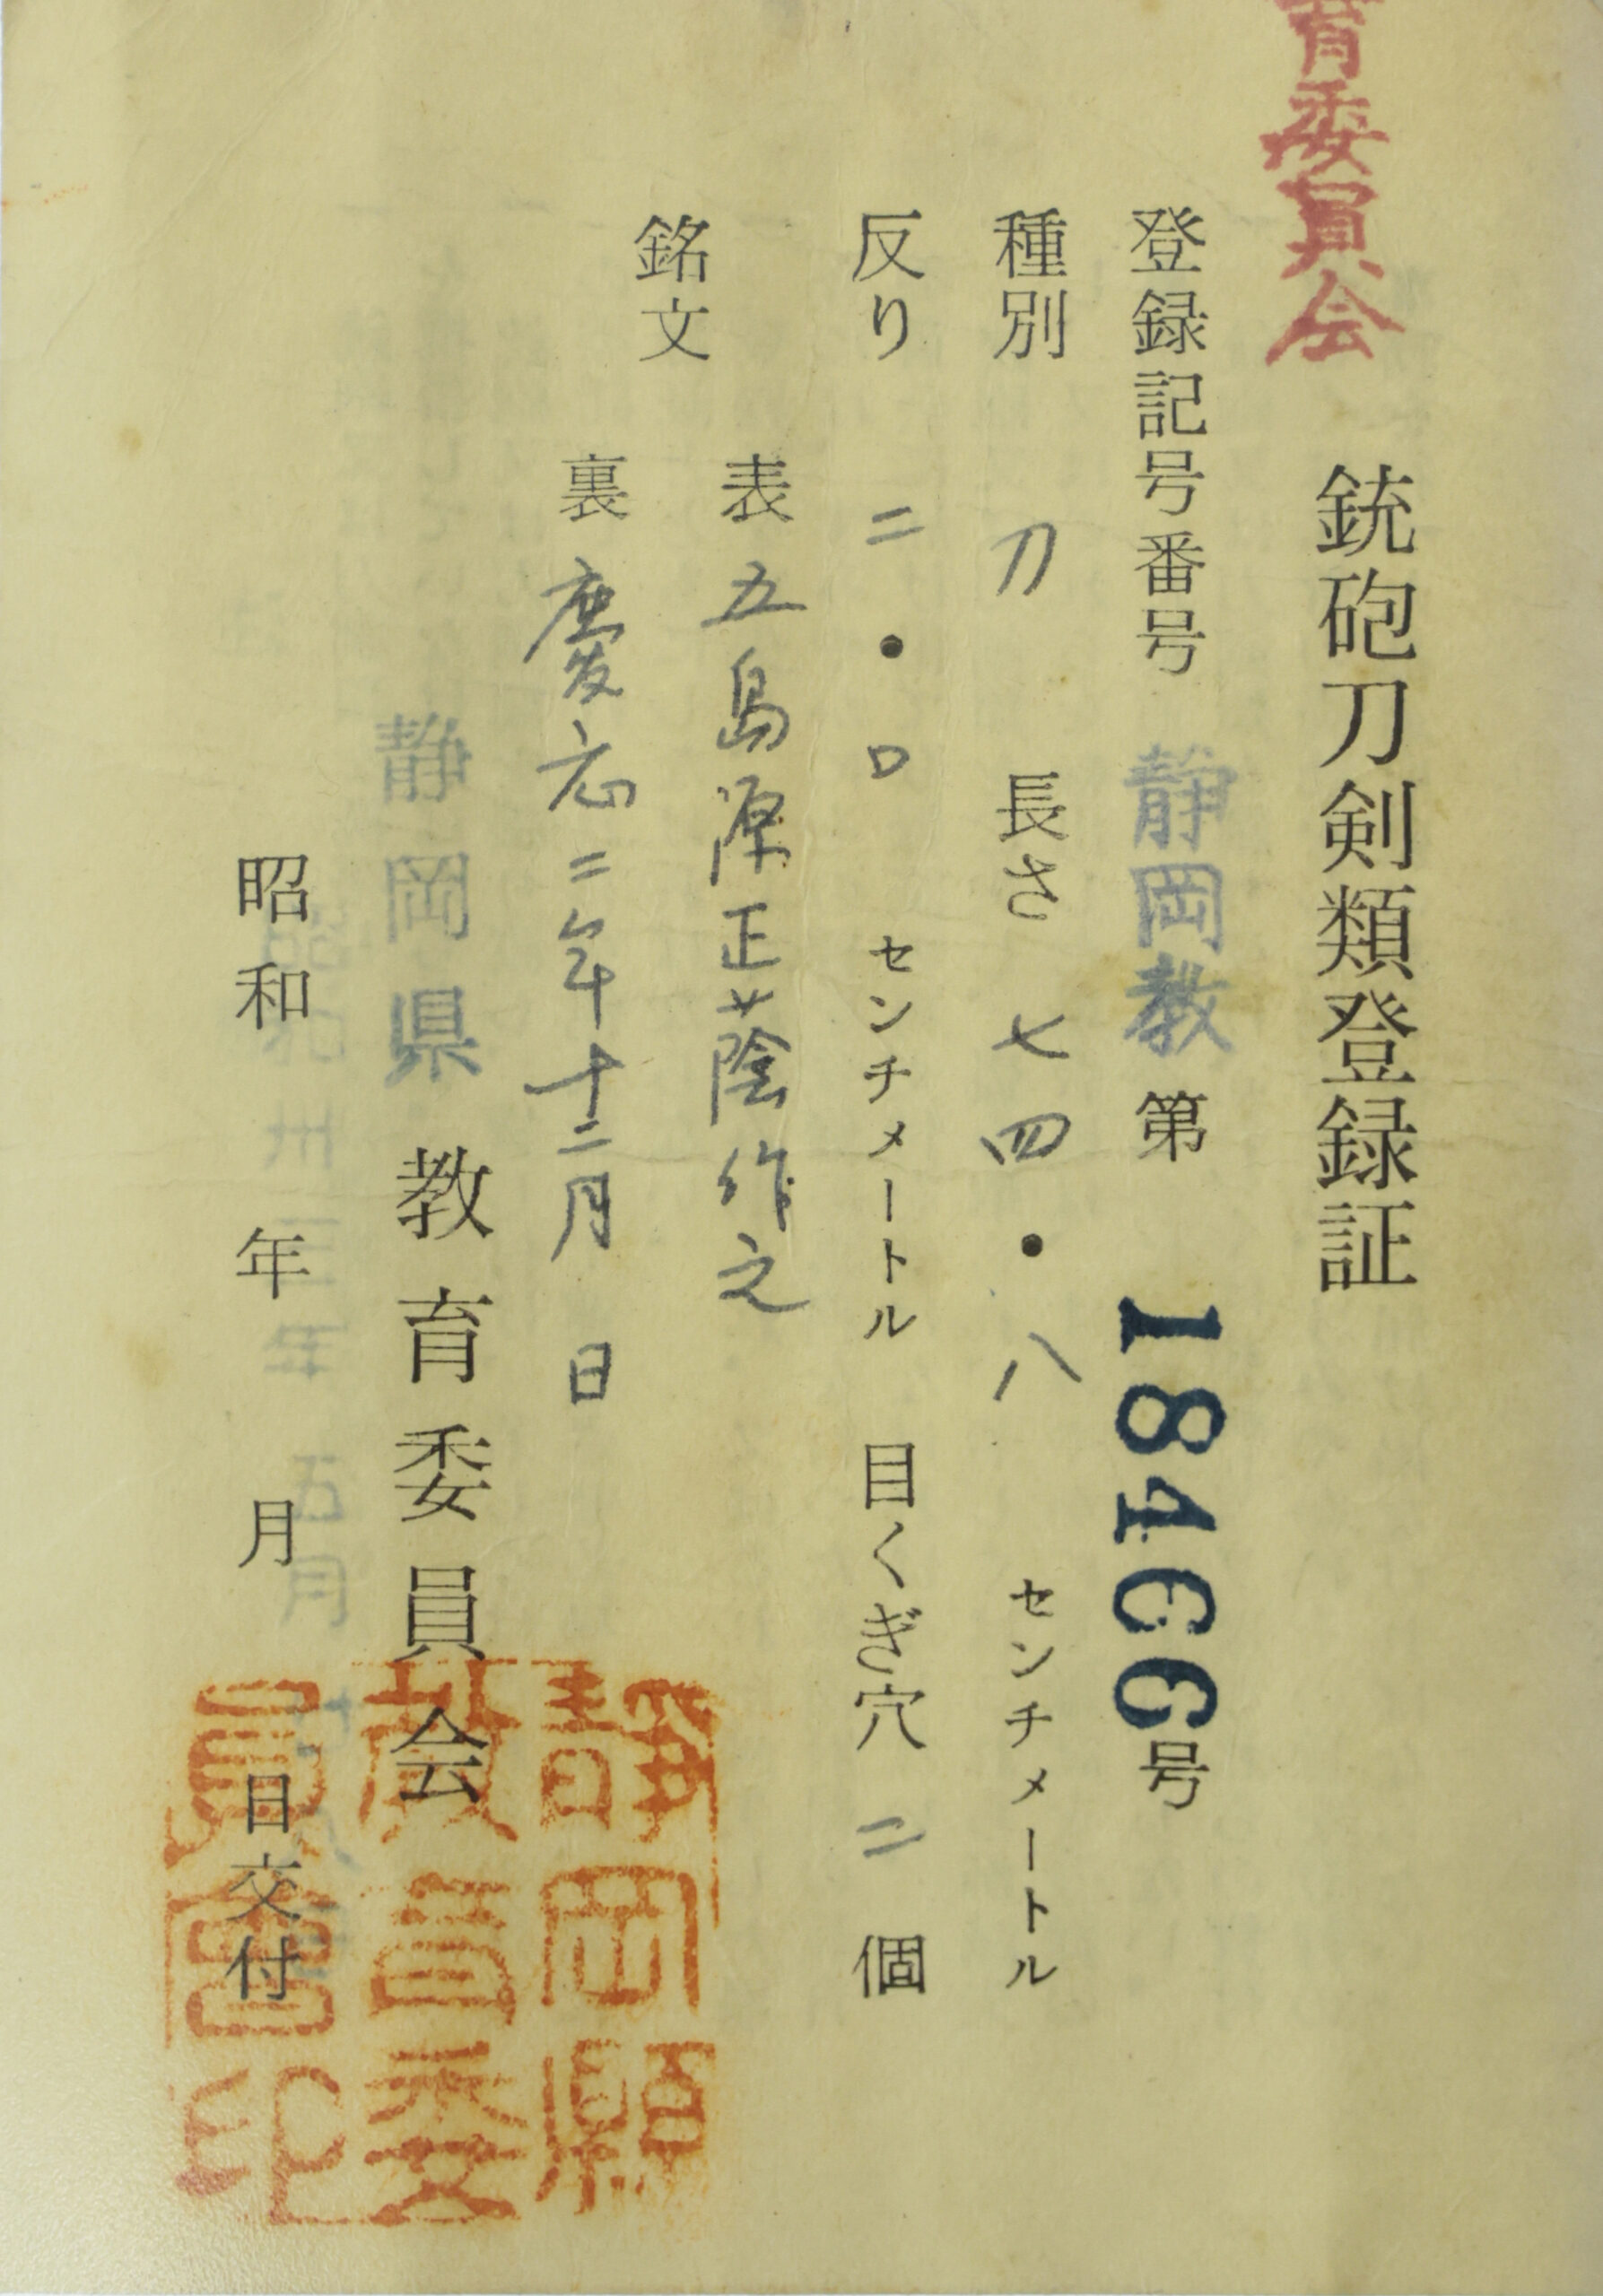 育委員会
銃砲刀剣類登録証
登録記号番号 静岡教 第 18466 号
種別 刀 長さ 七四・八 センチメートル
反り 二・〇 センチメートル 目くぎ穴 二 個
銘文
表 五島源正蔭作之
裏 慶応二年十二月 日
静岡県 教育委員会
昭和 年 月 日交付
昭和卅 年 五月十
靜岡縣
教育委
員會印